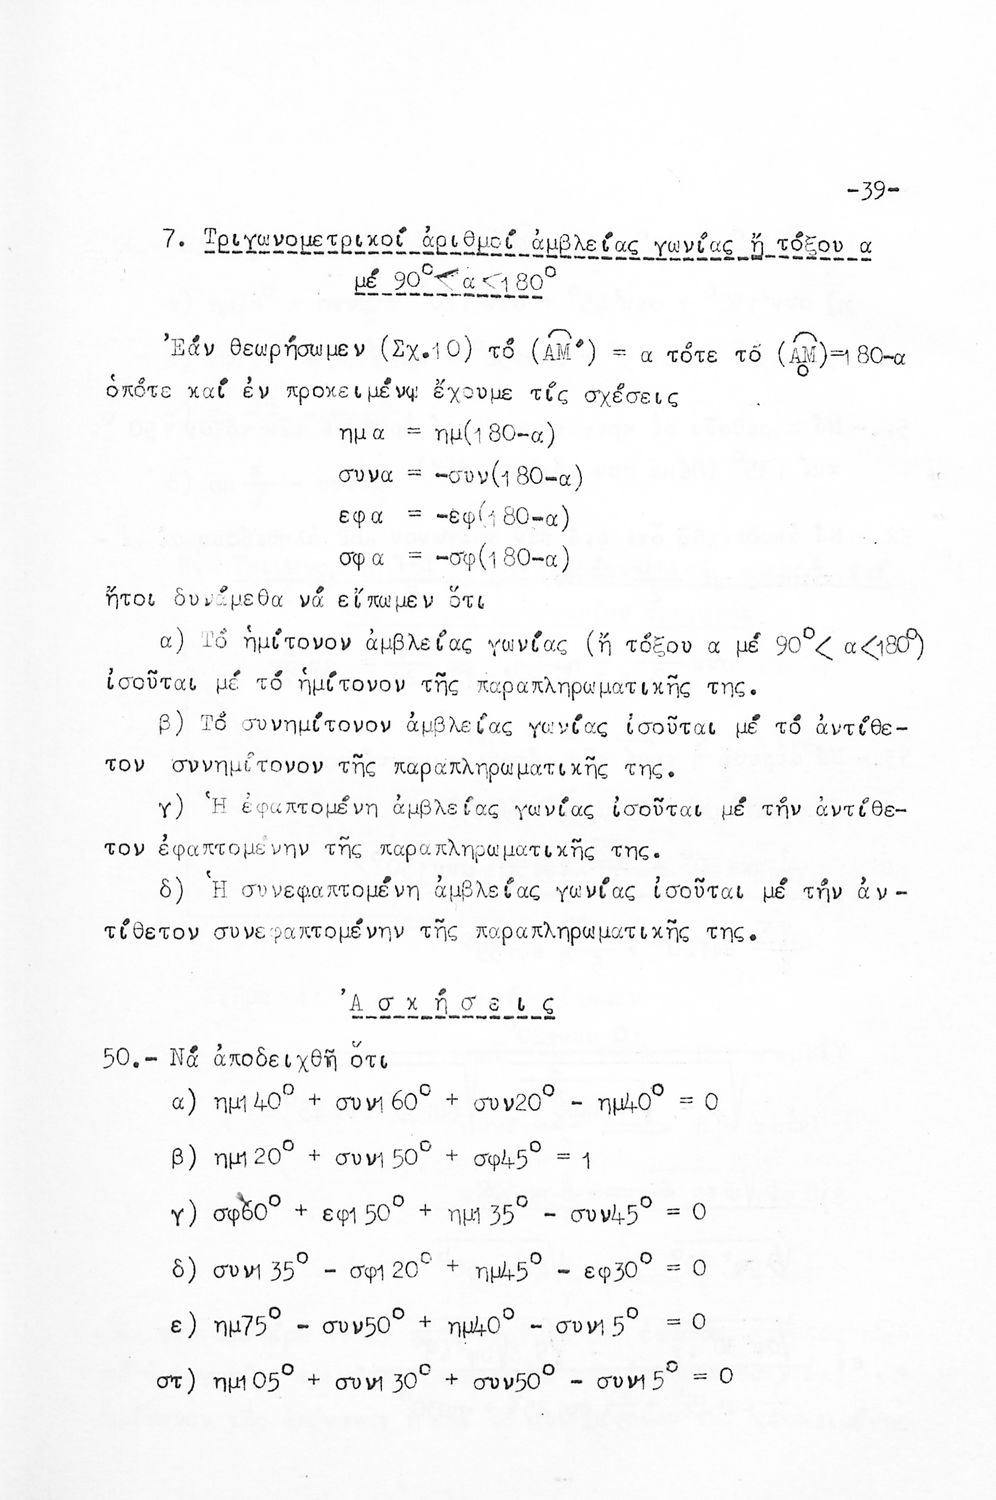 -39-
7. Τριγωνομετρικοί ἀριθμοί ἀμβλείας γωνίας ἤ τόξου α
μέ 90⁰<α<180⁰
Ἐάν θεωρήσωμεν (Σχ.10) τό (ΑΜ') = α τότε τό (ΑΜ₀)=180-α
ὁπότε καί ἐν προκειμένῳ ἔχουμε τίς σχέσεις
ημα = ημ(180-α)
συνα = -συν(180-α)
εφα = -εφ(180-α)
σφα = -σφ(180-α)
ἤτοι δυνάμεθα νά εἴπωμεν ὅτι
α) Τό ἡμίτονον ἀμβλείας γωνίας (ἤ τόξου α μέ 90⁰< α<180⁰)
ἰσοῦται μέ τό ἡμίτονον τῆς παραπληρωματικῆς της.
β) Τό συνημίτονον ἀμβλείας γωνίας ἰσοῦται μέ τό ἀντίθε-
τον συνημίτονον τῆς παραπληρωματικῆς της.
γ) Ἡ ἐφαπτομένη ἀμβλείας γωνίας ἰσοῦται μέ τήν ἀντίθε-
τον ἐφαπτομένην τῆς παραπληρωματικῆς της.
δ) Ἡ συνεφαπτομένη ἀμβλείας γωνίας ἰσοῦται μέ τήν ἀν-
τίθετον συνεφαπτομένην τῆς παραπληρωματικῆς της.
Ἀ σ κ ή σ ε ι ς
50.- Νά ἀποδειχθῆ ὅτι
α) ημ140⁰ + συν160⁰ + συν20⁰ - ημ40⁰ = 0
β) ημ120⁰ + συν150⁰ + σφ45⁰ = 1
γ) σφ60⁰ + εφ150⁰ + ημ135⁰ - συν45⁰ = 0
δ) συν135⁰ - σφ120⁰ + ημ45⁰ - εφ30⁰ = 0
ε) ημ75⁰ - συν50⁰ + ημ40⁰ - συν15⁰ = 0
στ) ημ105⁰ + συν130⁰ + συν50⁰ - συν15⁰ = 0